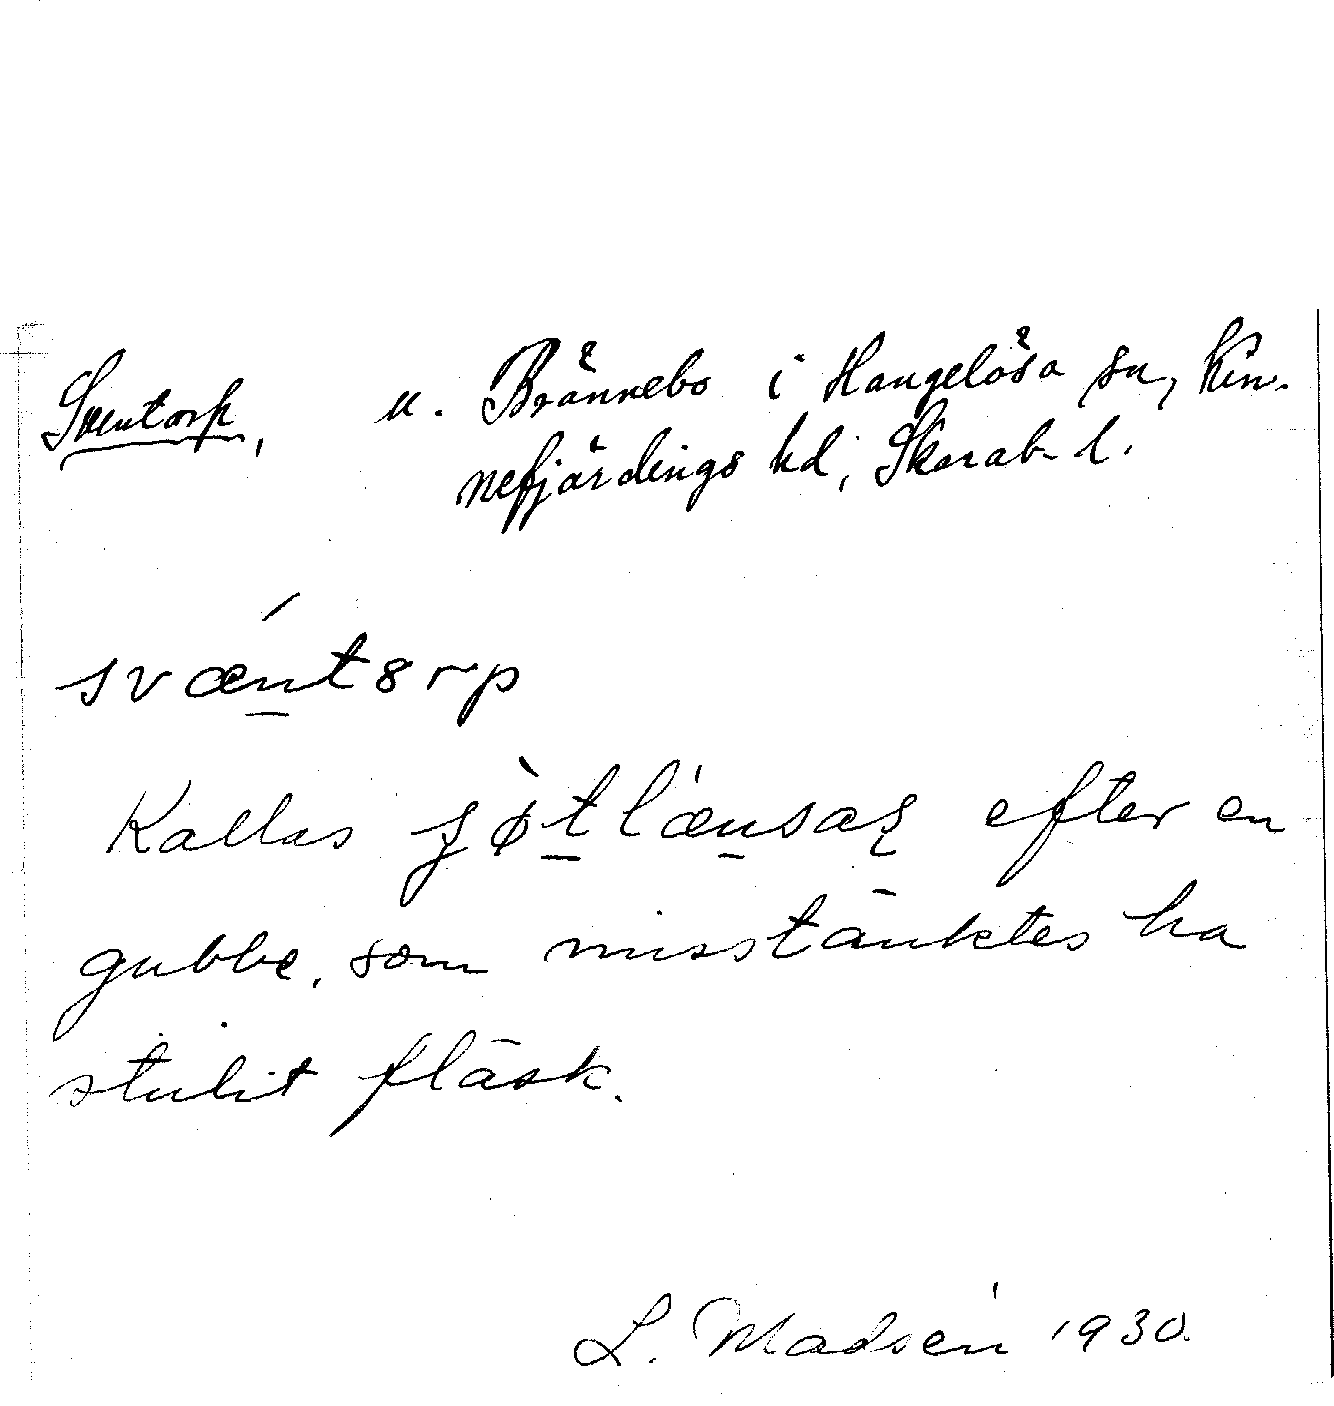 Sventorp, u. Brännebo i Hangelösa sn, Kin-
nefjärdings hd, Skarab. l.
svæ̀ntɵrp
Kallas efter en
gubbe, som misstänktes ha
stulit fläsk.
L. Madsén 1930.